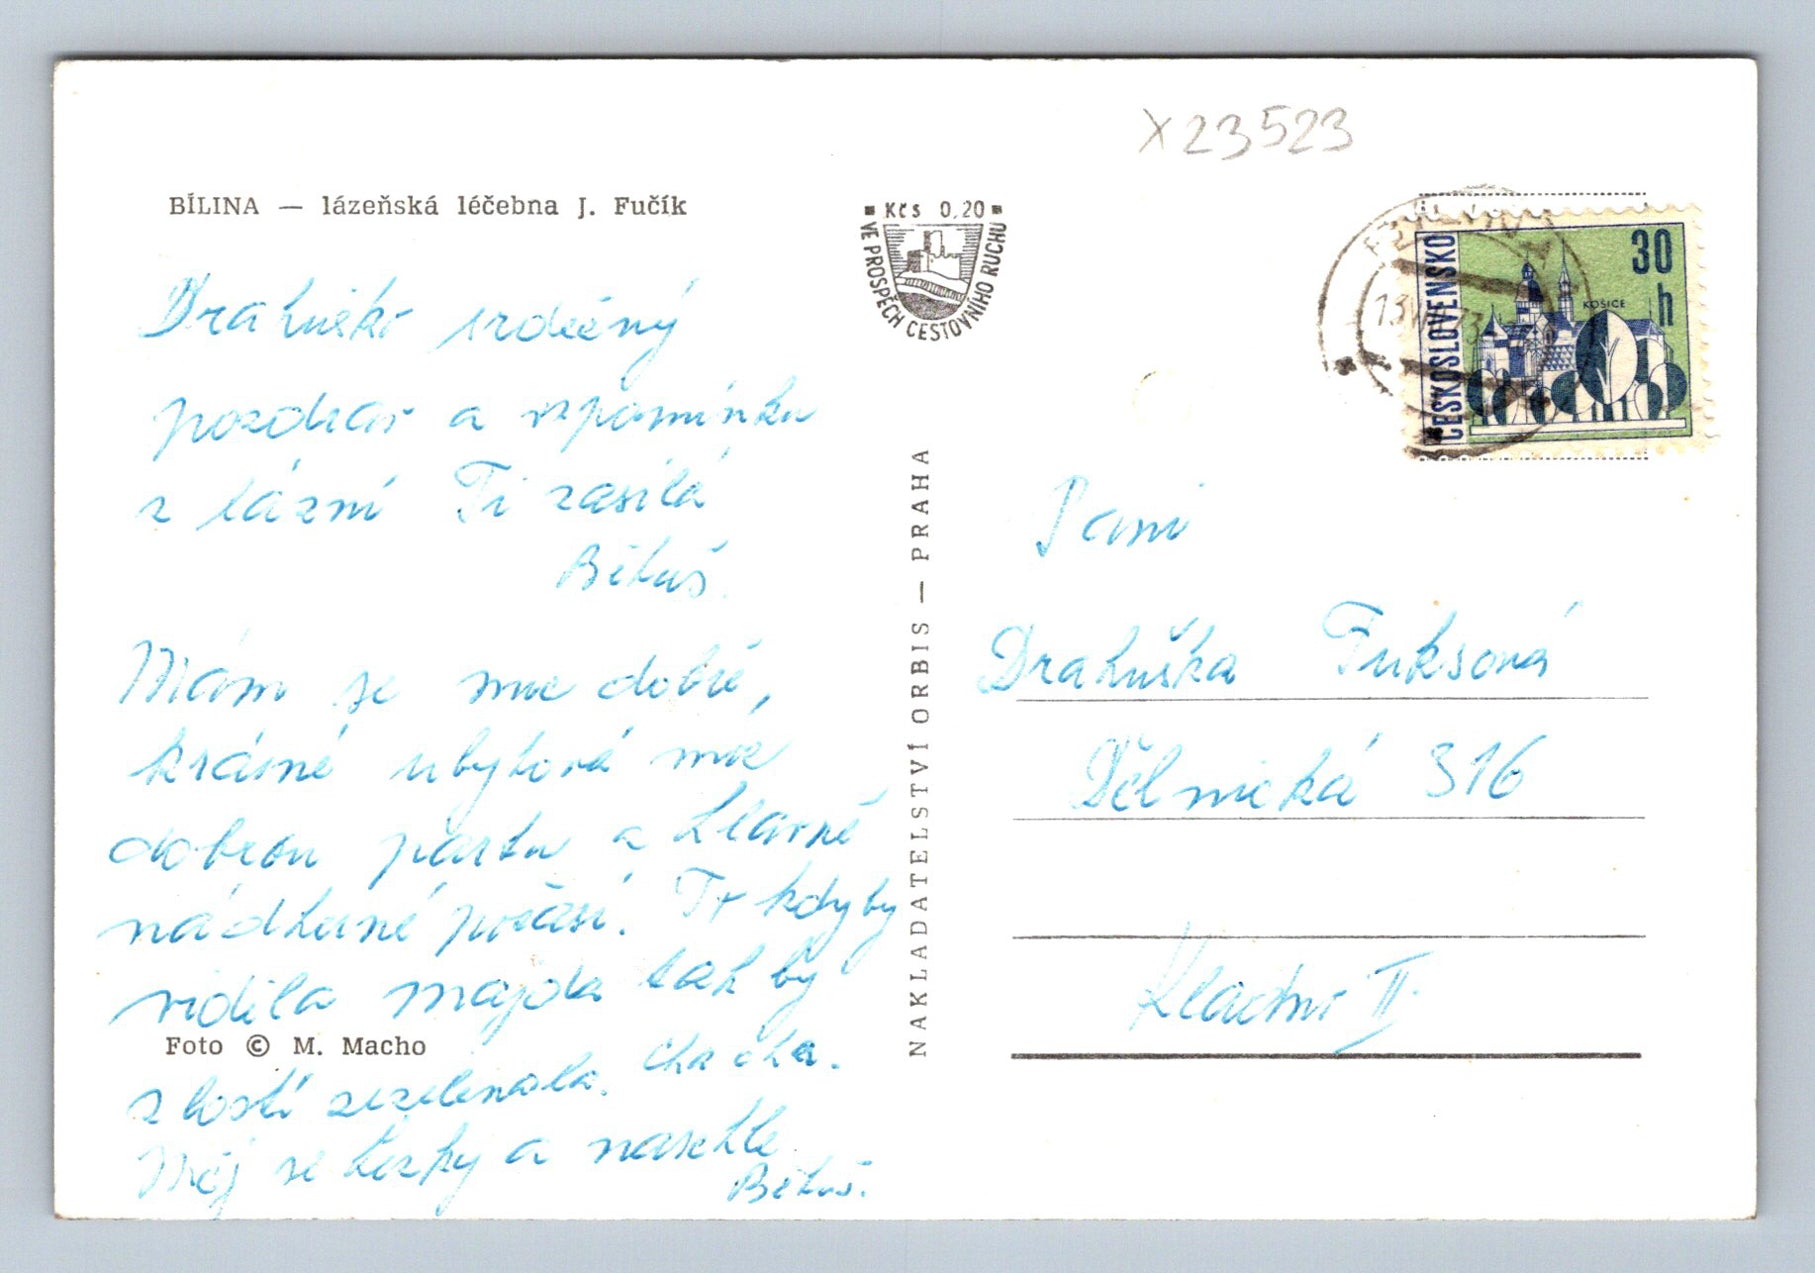 X23523
BÍLINA — lázeňská léčebna J. Fučík
Kčs 0,20
VE PROSPĚCH CESTOVNÍHO RUCHU
ČESKOSLOVENSKO
30
h
KOŠICE
Drahuško srdečný
pozdrav a vzpomínku
z lázní Ti zasílá
Běluš.
Mám se moc dobře,
krásné ubytová moc
dobrou partu a hlavně
nádherné počasí. To kdyby
viděla majda tak by
zlostí zezelenala. Cha cha.
Měj se hezky a nashle
Běluš.
Foto © M. Macho
NAKLADATELSTVÍ ORBIS — PRAHA
Paní
Drahuška Fuksová
Dělnická 316
Kladno II.